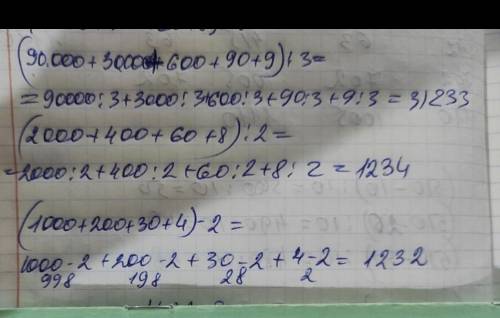 (90.000+30000+600+90+9):3=
=90000:3+3000:3+600:3+90:3+9:3=31233
(2000+400+60+8):2=
=2000:2+400:2+60:2+8:2=1234
(1000+200+30+4)-2=
1000-2+200-2+30-2+4-2=1232
998 198 28 2